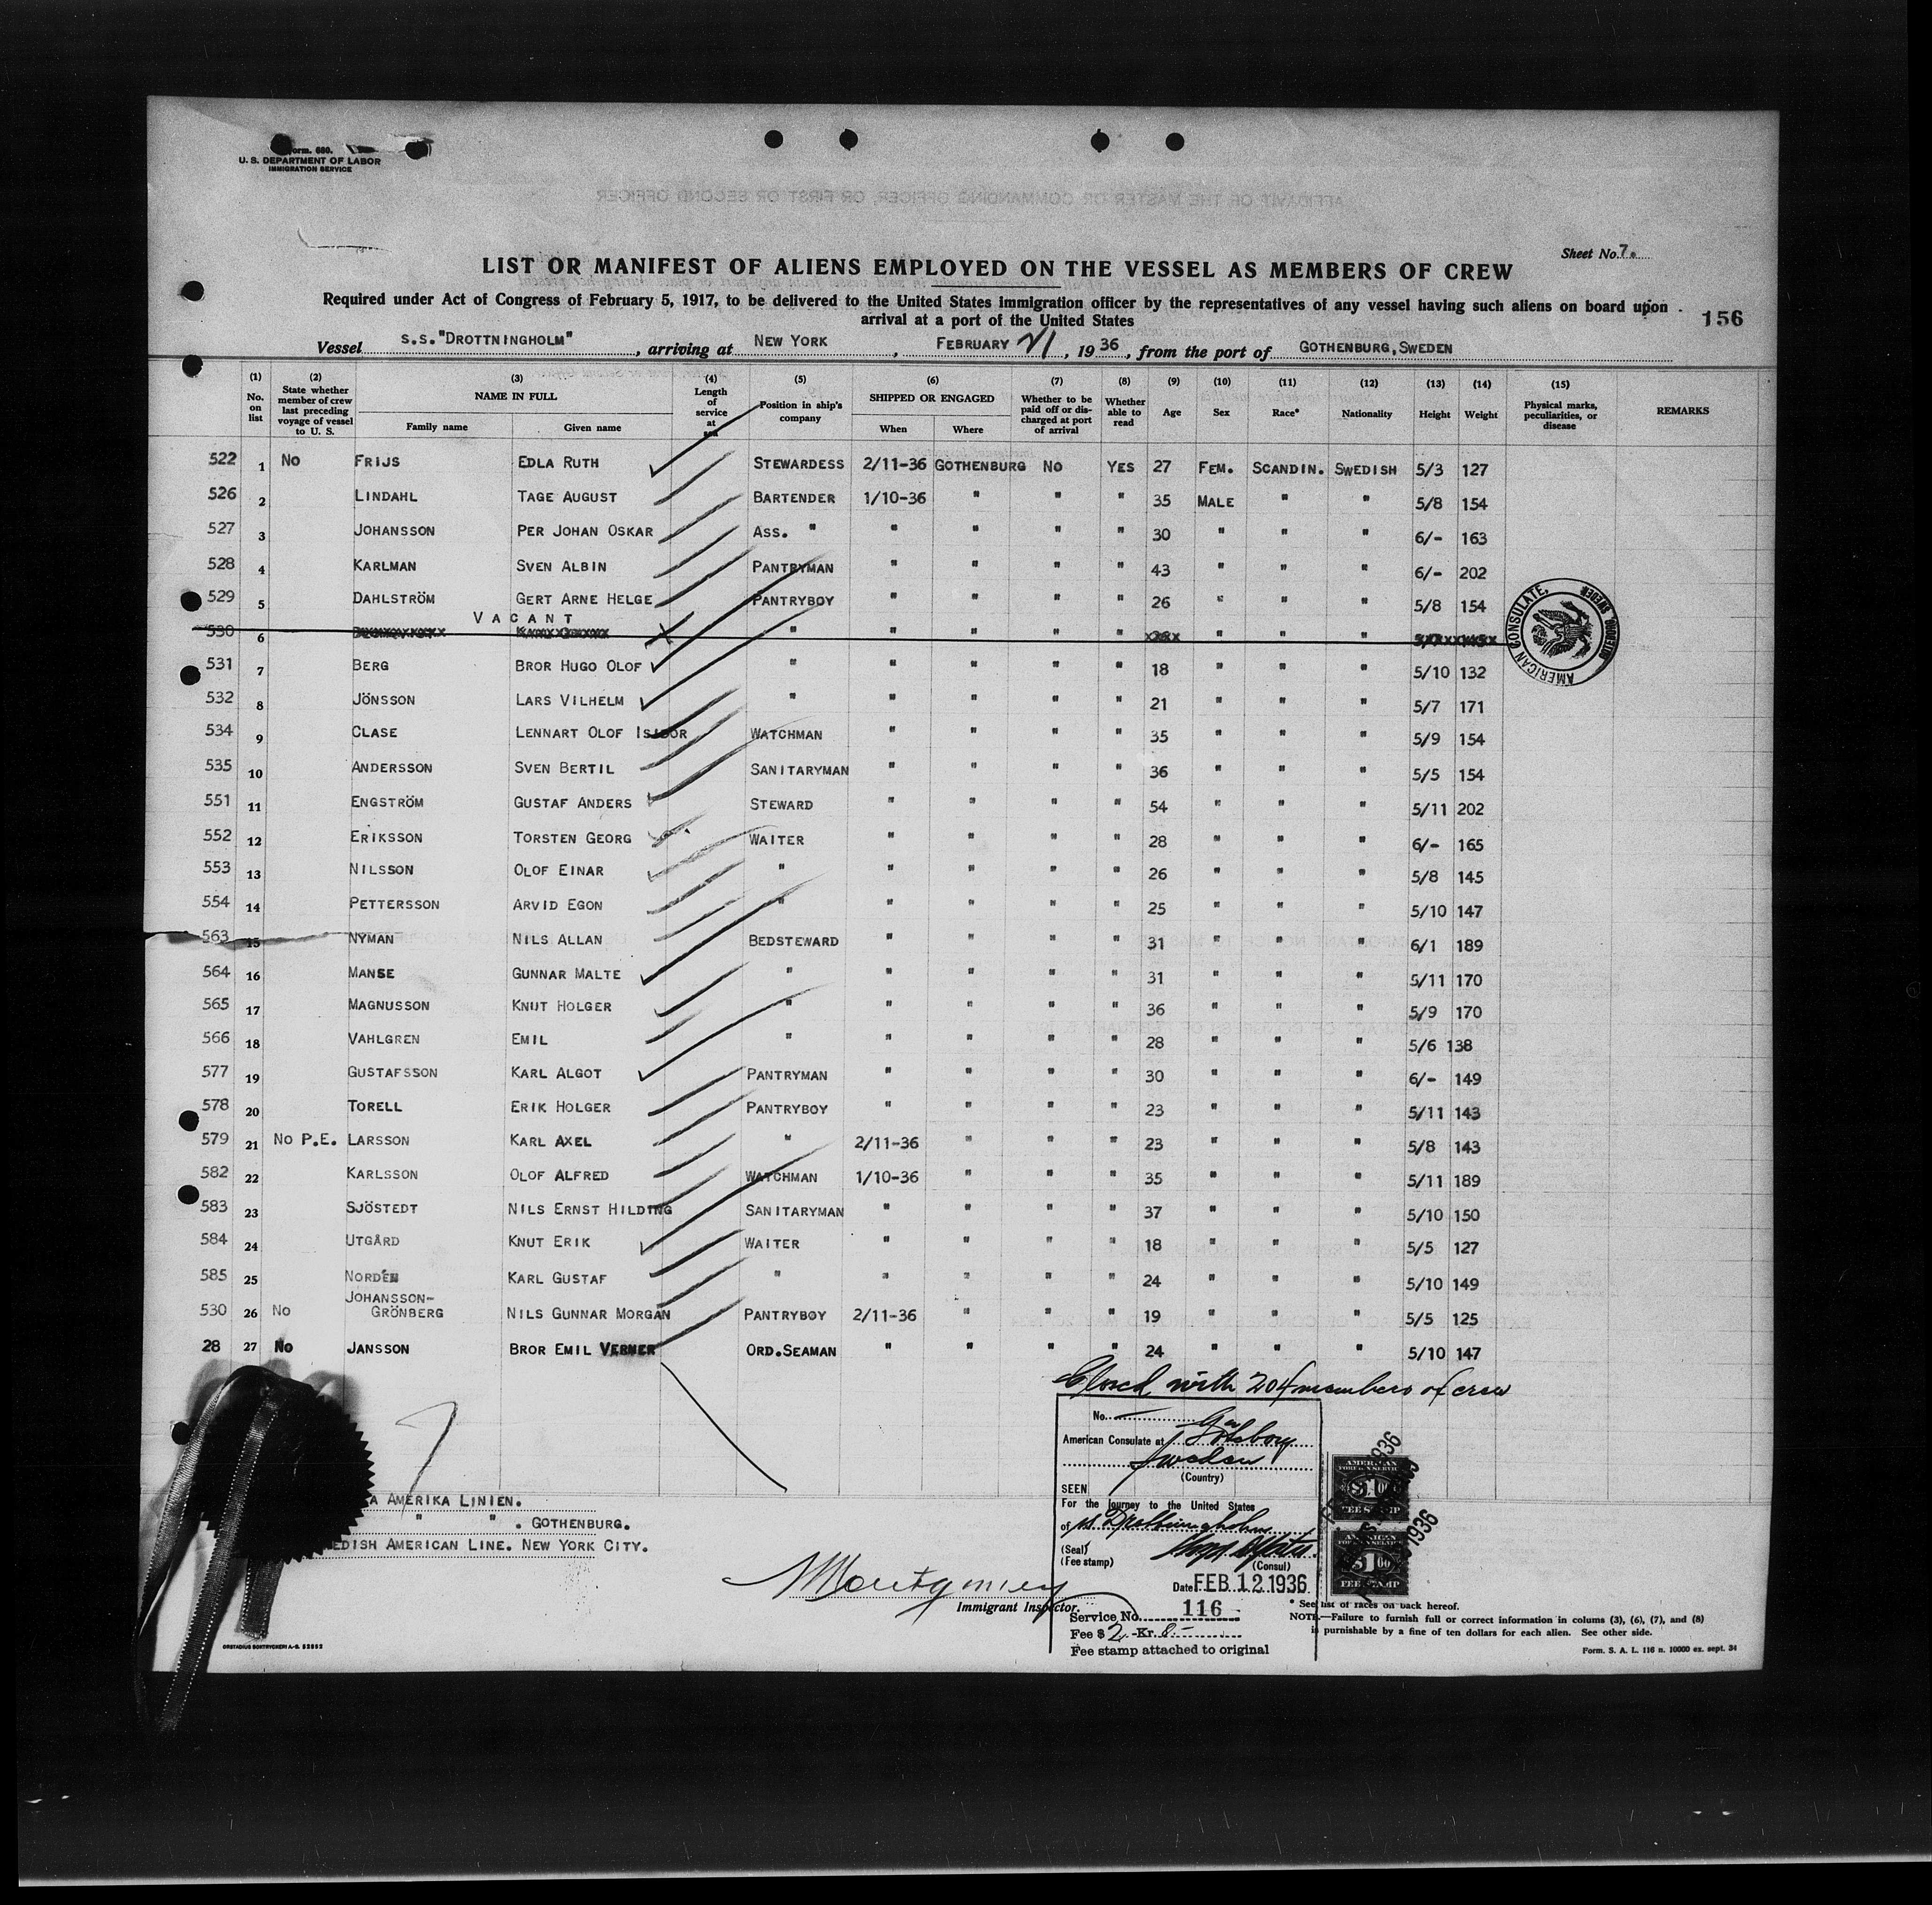 Form. 680.
U. S. DEPARTMENT OF LABOR
IMMIGRATION SERVICE
AFFIDAVIT OF THE MASTER OR COMMANDING OFFICER, OR FIRST OR SECOND OFFICER
Sheet No. 7.
LIST OR MANIFEST OF ALIENS EMPLOYED ON THE VESSEL AS MEMBERS OF CREW
Required under Act of Congress of February 5, 1917, to be delivered to the United States immigration officer by the representatives of any vessel having such aliens on board upon
arrival at a port of the United States
156
Vessel S.S. "DROTTNINGHOLM", arriving at NEW YORK, FEBRUARY 21, 1936, from the port of GOTHENBURG, SWEDEN
(1) No. on list (2) State whether member of crew last preceding voyage of vessel to U. S. (3) NAME IN FULL Family name Given name (4) Length of service at sea (5) Position in ship's company (6) SHIPPED OR ENGAGED When Where (7) Whether to be paid off or discharged at port of arrival (8) Whether able to read (9) Age (10) Sex (11) Race* (12) Nationality (13) Height (14) Weight (15) Physical marks, peculiarities, or disease REMARKS
522 1 NO FRIJS EDLA RUTH STEWARDESS 2/11-36 GOTHENBURG NO YES 27 FEM. SCANDIN. SWEDISH 5/3 127
526 2 LINDAHL TAGE AUGUST BARTENDER 1/10-36 " " " 35 MALE " " 5/8 154
527 3 JOHANSSON PER JOHAN OSKAR ASS. " " " " " 30 " " " 6/- 163
528 4 KARLMAN SVEN ALBIN PANTRYMAN " " " " 43 " " " 6/- 202
529 5 DAHLSTRÖM GERT ARNE HELGE PANTRYBOY " " " " 26 " " " 5/8 154
530 6 VACANT " " " " " " " "
531 7 BERG BROR HUGO OLOF " " " " " 18 " " " 5/10 132
532 8 JÖNSSON LARS VILHELM " " " " " 21 " " " 5/7 171
534 9 CLASE LENNART OLOF ISIDOR WATCHMAN " " " " 35 " " " 5/9 154
535 10 ANDERSSON SVEN BERTIL SANITARYMAN " " " " 36 " " " 5/5 154
551 11 ENGSTRÖM GUSTAF ANDERS STEWARD " " " " 54 " " " 5/11 202
552 12 ERIKSSON TORSTEN GEORG WAITER " " " " 28 " " " 6/- 165
553 13 NILSSON OLOF EINAR " " " " " 26 " " " 5/8 145
554 14 PETTERSSON ARVID EGON " " " " " 25 " " " 5/10 147
563 15 NYMAN NILS ALLAN BEDSTEWARD " " " " 31 " " " 6/1 189
564 16 MANSE GUNNAR MALTE " " " " " 31 " " " 5/11 170
565 17 MAGNUSSON KNUT HOLGER " " " " " 36 " " " 5/9 170
566 18 VAHLGREN EMIL " " " " " 28 " " " 5/6 138
577 19 GUSTAFSSON KARL ALGOT PANTRYMAN " " " " 30 " " " 6/- 149
578 20 TORELL ERIK HOLGER PANTRYBOY " " " " 23 " " " 5/11 143
579 21 NO P.E. LARSSON KARL AXEL " 2/11-36 " " " 23 " " " 5/8 143
582 22 KARLSSON OLOF ALFRED WATCHMAN 1/10-36 " " " 35 " " " 5/11 189
583 23 SJÖSTEDT NILS ERNST HILDING SANITARYMAN " " " " 37 " " " 5/10 150
584 24 UTGÅRD KNUT ERIK WAITER " " " " 18 " " " 5/5 127
585 25 NORDÉN KARL GUSTAF " " " " " 24 " " " 5/10 149
530 26 NO JOHANSSON-GRÖNBERG NILS GUNNAR MORGAN PANTRYBOY 2/11-36 " " " 19 " " " 5/5 125
28 27 NO JANSSON BROR EMIL VERNER ORD.SEAMAN " " " " 24 " " " 5/10 147
AMERICAN CONSULATE,
Closed with 204 members of crew
No.
American Consulate at Göteborg
Sweden
(Country)
SEEN
For the Journey to the United States
of ss. Drottningholm
(Seal)
(Fee stamp)
(Consul)
Date FEB 12 1936
Service No. 116
Fee $ 2.-Kr. 8.-
Fee stamp attached to original
AMERICAN
FOREIGN SERVICE
$1.00
FEE STAMP
AMERICAN
FOREIGN SERVICE
$1.00
FEE STAMP
1936
1936
A AMERIKA LINIEN.
" " . GOTHENBURG.
EDISH AMERICAN LINE. NEW YORK CITY.
Montgomery
Immigrant Inspector.
* See list of races on back hereof.
NOTE.—Failure to furnish full or correct information in colums (3), (6), (7), and (8)
is punishable by a fine of ten dollars for each alien. See other side.
Form. S. A. L. 116 n. 10000 ex. sept. 34